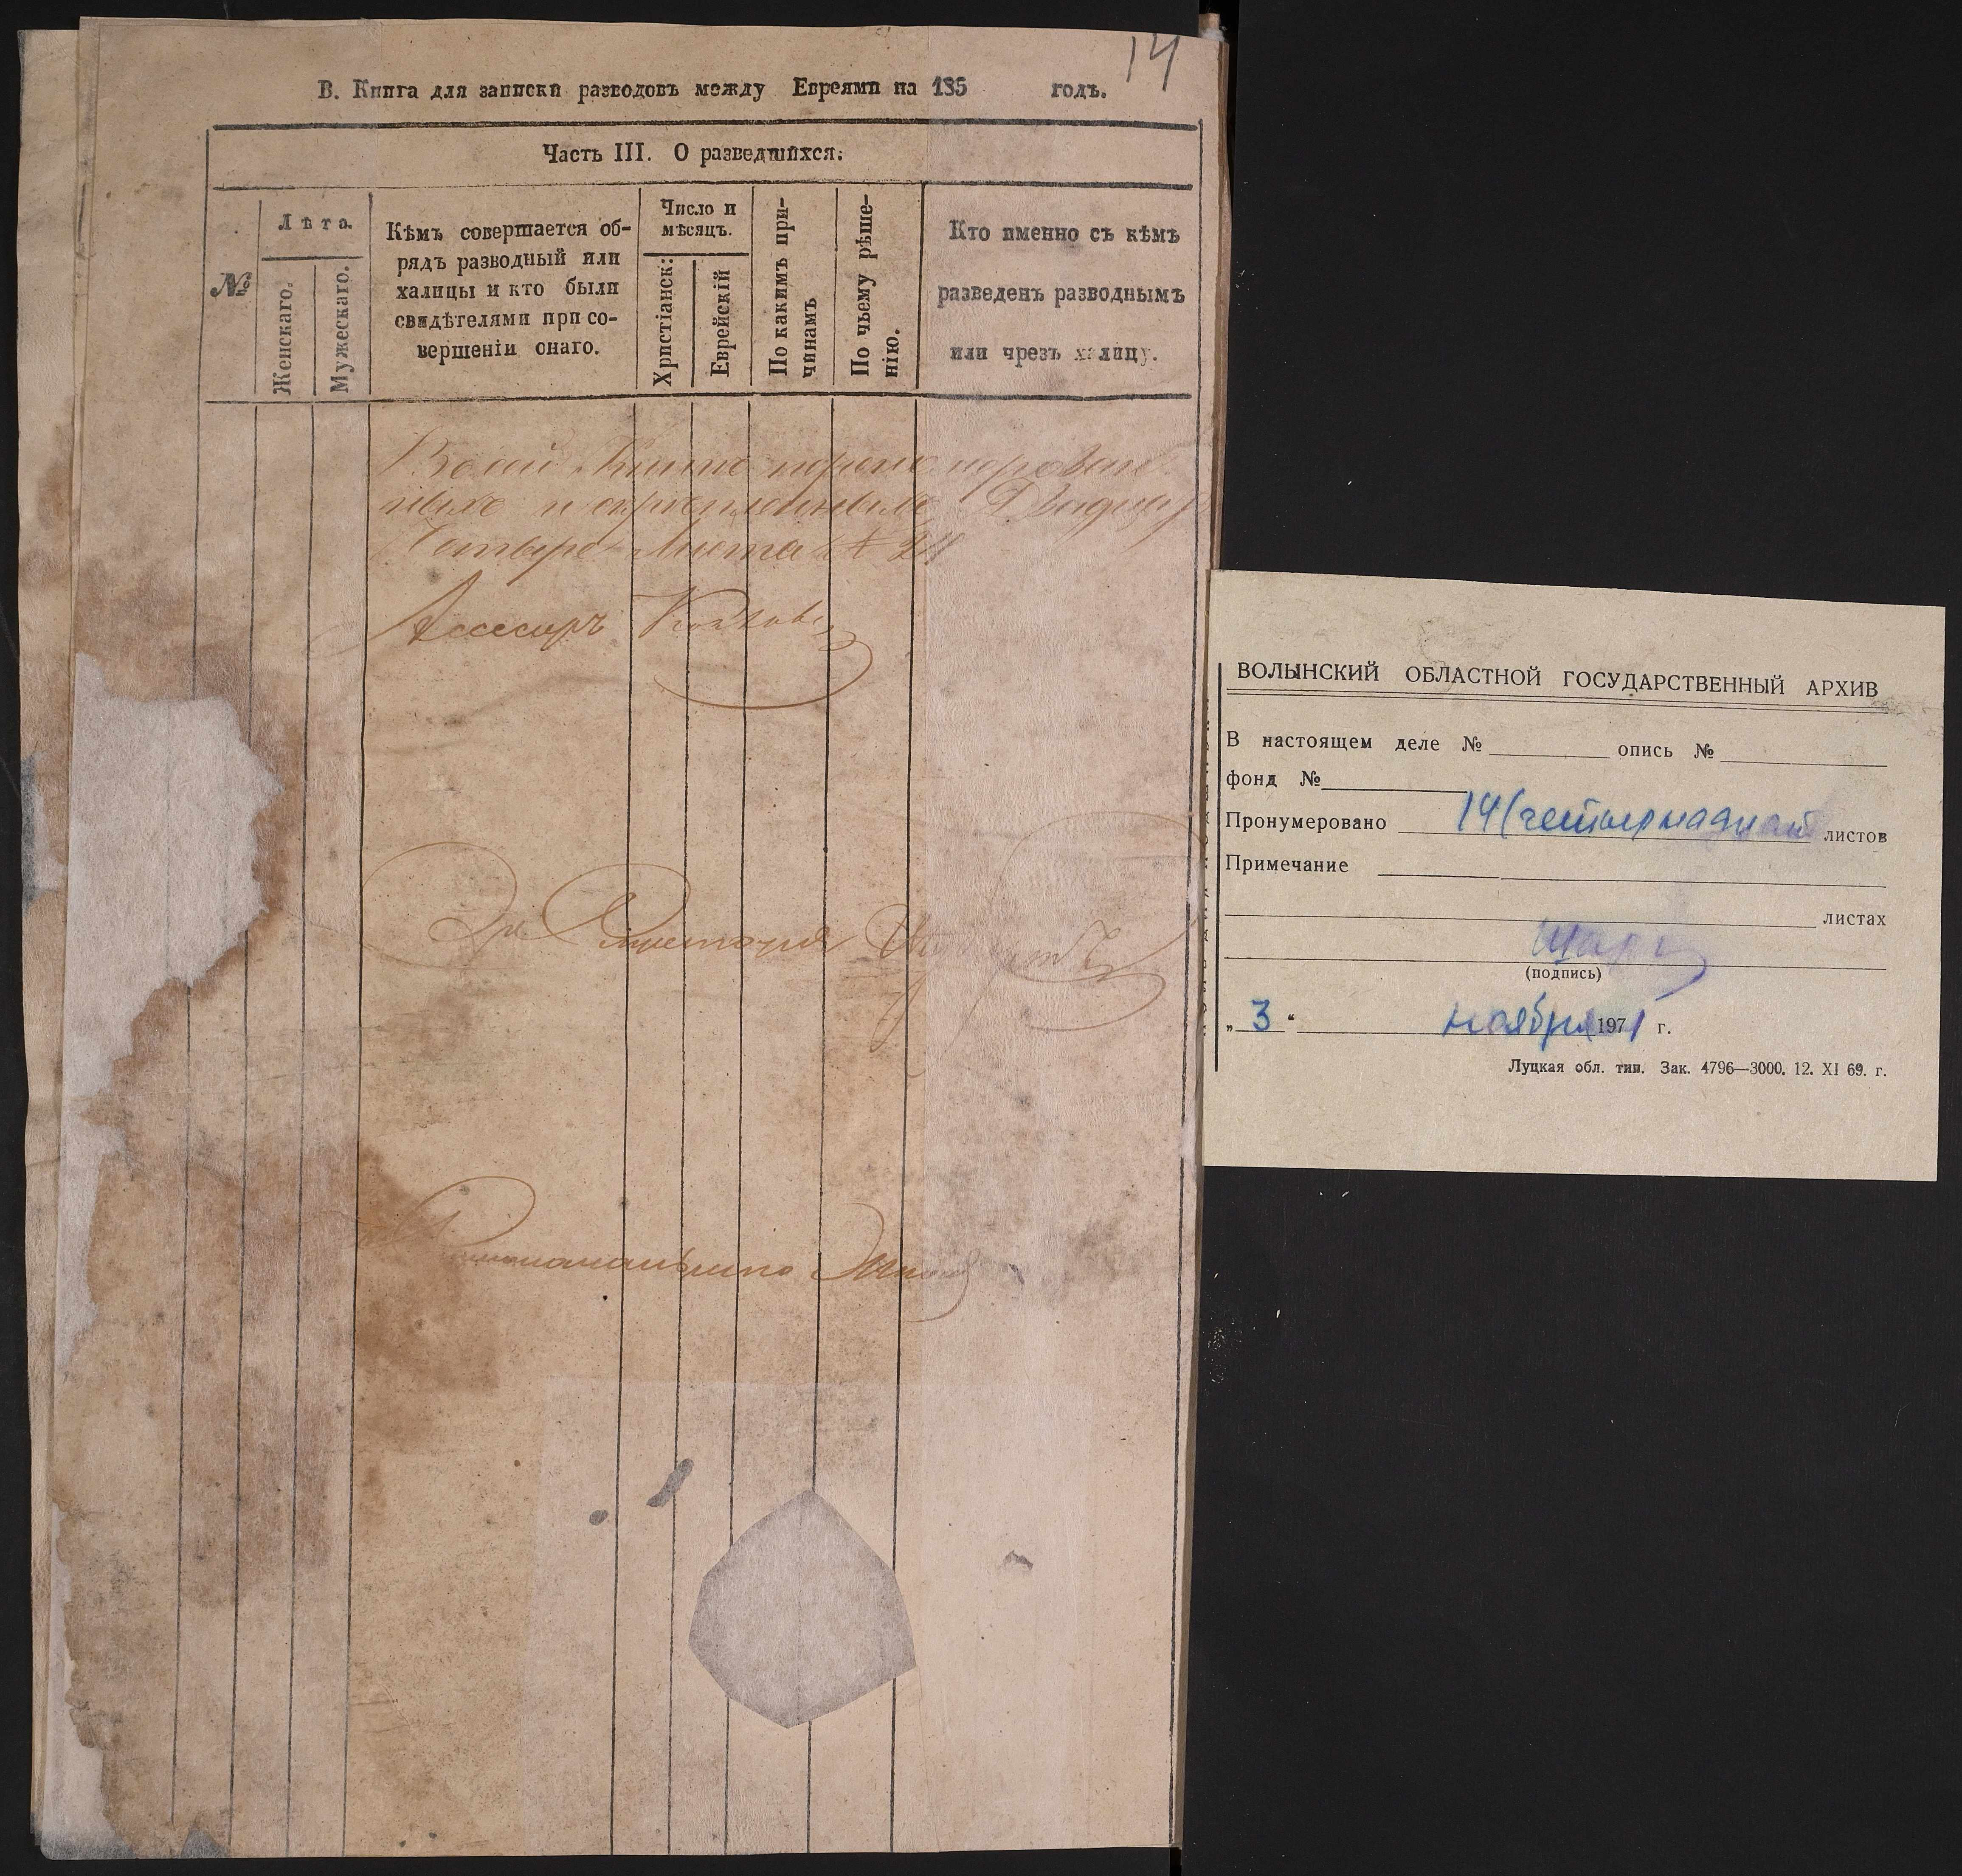 14
В. Книга для записки разводовъ между Евреями на 185 годъ.
Часть III. О разведшихся.
№
Лѣта.
Женскаго.
Мужескаго.
Кѣмъ совершается об-
рядъ разводный или
халицы и кто были
свидѣтелями при со-
вершеніи онаго.
Число и
мѣсяцъ.
Христіанск:
Еврейскій
По какимъ при-
чинамъ
По чьему рѣше-
нію.
Кто именно съ кѣмъ
разведенъ разводнымъ
или чрезъ халицу.
Въ сей Книге
Двадцать
Четыре Листа 24
Ассесоръ
ВОЛЫНСКИЙ ОБЛАСТНОЙ ГОСУДАРСТВЕННЫЙ АРХИВ
В настоящем деле № опись №
фонд №
Пронумеровано 14 (четырнадцать листов
Примечание
листах
(подпись)
„ 3 “ ноября 1971 г.
Луцкая обл. тип. Зак. 4796—3000. 12. XI 69. г.